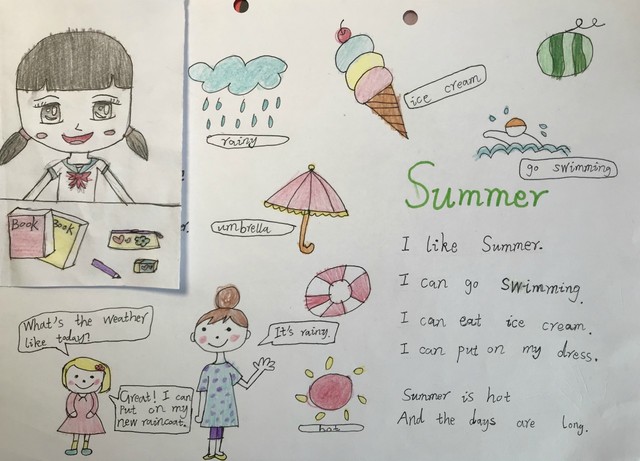 BOOK
BOOK
rainy
ice cream
go swimming
umbrella
Summer
I like Summer.
I can go swimming.
I can eat ice cream.
I can put on my dress.
Summer is hot
And the days are long.
What's the weather
like today?
It's rainy.
Great! I can
Put on my
new raincoat.
hot